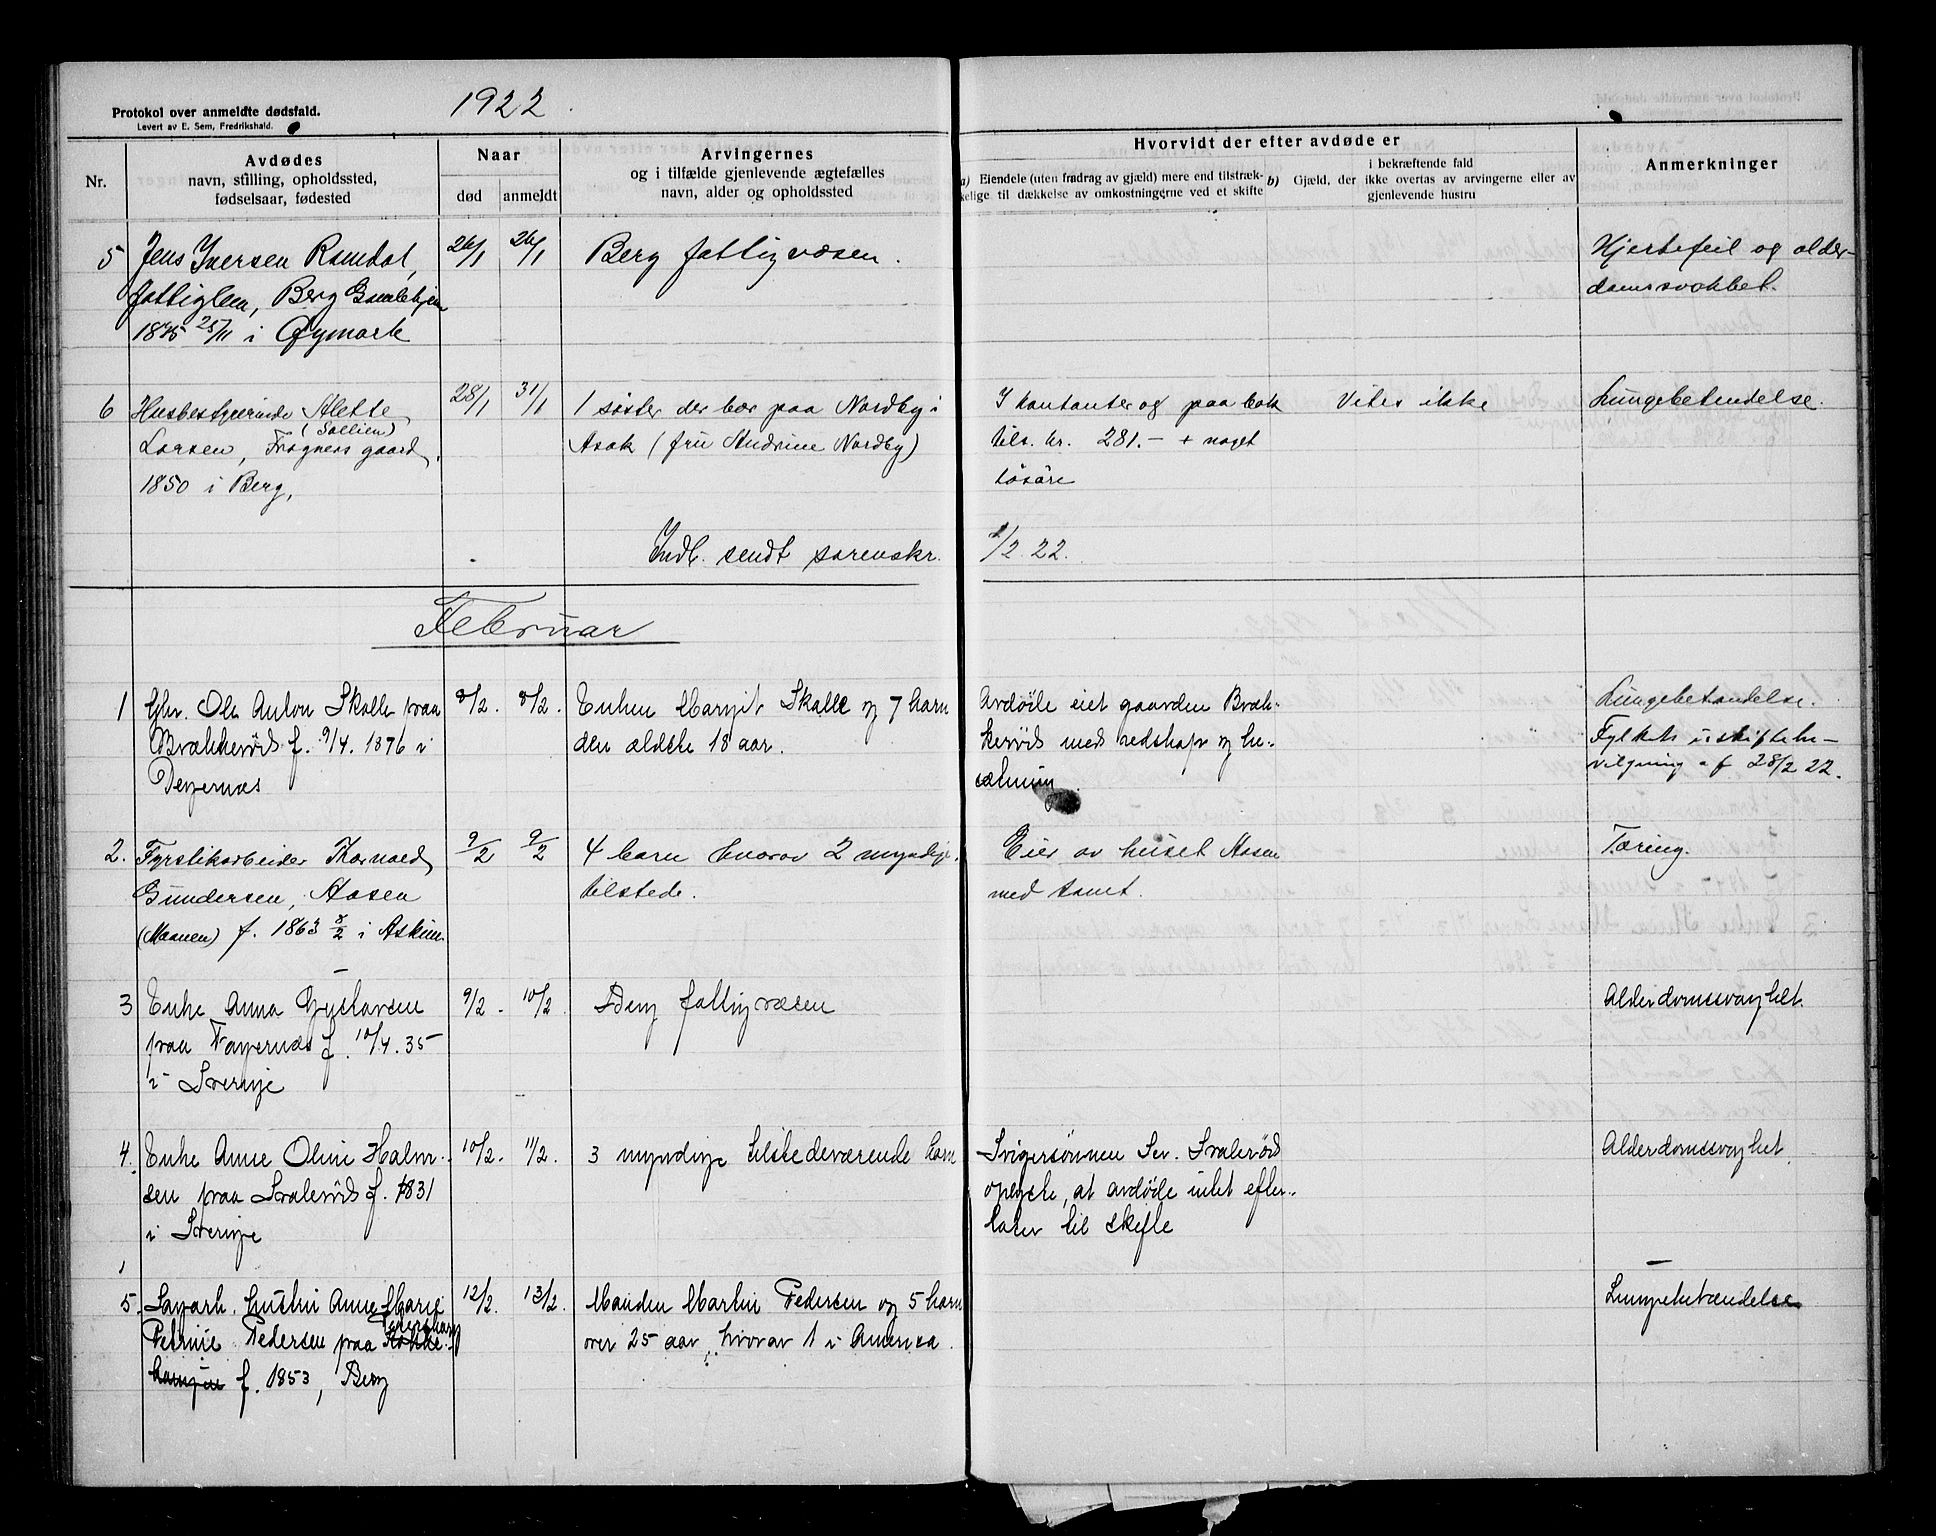 1922
Protokol over anmeldte dødsfald.
Levert av E. Sem, Fredrikshald.
Nr.
Avdødes
navn, stilling, opholdssted,
fødselsaar, fødested
Naar
død
anmeldt
Arvingernes
og i tilfælde gjenlevende ægtefælles
navn, alder og opholdssted
Hvorvidt der efter avdøde er
a) Eiendele (uten fradrag av gjæld) mere end tilstræk-
kelige til dækkelse av omkostningerne ved et skifte
i bekræftende fald
b) Gjæld, der ikke overtas av arvingerne eller av
gjenlevende hustru
Anmerkninger
5 Jens Iversen Ramdal, 26/1 26/1 Berg fattigvæsen. Hjertefeil og alder-
fattiglem, Berg Gamlehjem domssvakhet.
1845 25/11 i Øymark
6 Husbestyrerinde Alette 28/1 31/1 1 søster der bor paa Nordby i I kontanter og paa bok Vites ikke Lungebetendelse.
(Sollien)
Larsen, Fragners gaard, Asak (fru Andrine Nordby) tils. kr. 281.- + noget
1850 i Berg, løsøre
Indb. sendt sorenskr. 1/2 22.
Februar
1 Gbr. Ole Anton Skolle paa 8/2. 8/2. Enken Margit Skolle og 7 barn Avdøde eiet gaarden Bræk- Lungebetendelse.
Brækkerød f. 9/4. 1876 i den ældste 18 aar. kerød med redskap og be- Fylkets uskiftebe-
Degernes sætning vilgning af 28/2 22.
2. Fyrstikarbeider Thorvald 9/2 9/2 4 barn hvorav 2 myndige. Eier av huset Aasen Tæring.
Gundersen, Aasen tilstede. med tomt.
(Maanen) f. 1863 8/2 i Askim.
3 Enke Anna Gustavsen 9/2. 10/2. Berg fattigvæsen Alderdomssvaghet.
paa Tagernæs f. 10/4. 35
i Sverige
4. Enke Anne Oline Halvor- 10/2. 11/2. 3 myndige tilstedeværende barn Svigersønnen Sev. Svalerød Alderdomssvaghet.
sen paa Svalerød f. 1831 oplyste, at avdøde intet efter-
i Sverige later til skifte
5. Sagarb. hustru Anne Marie 12/2. 13/2. Manden Martin Pedersen og 5 barn Lungebetændelse
Petrine Pedersen paa over 25 aar, hvorav 1 i Amerika.
f. 1853, Berg